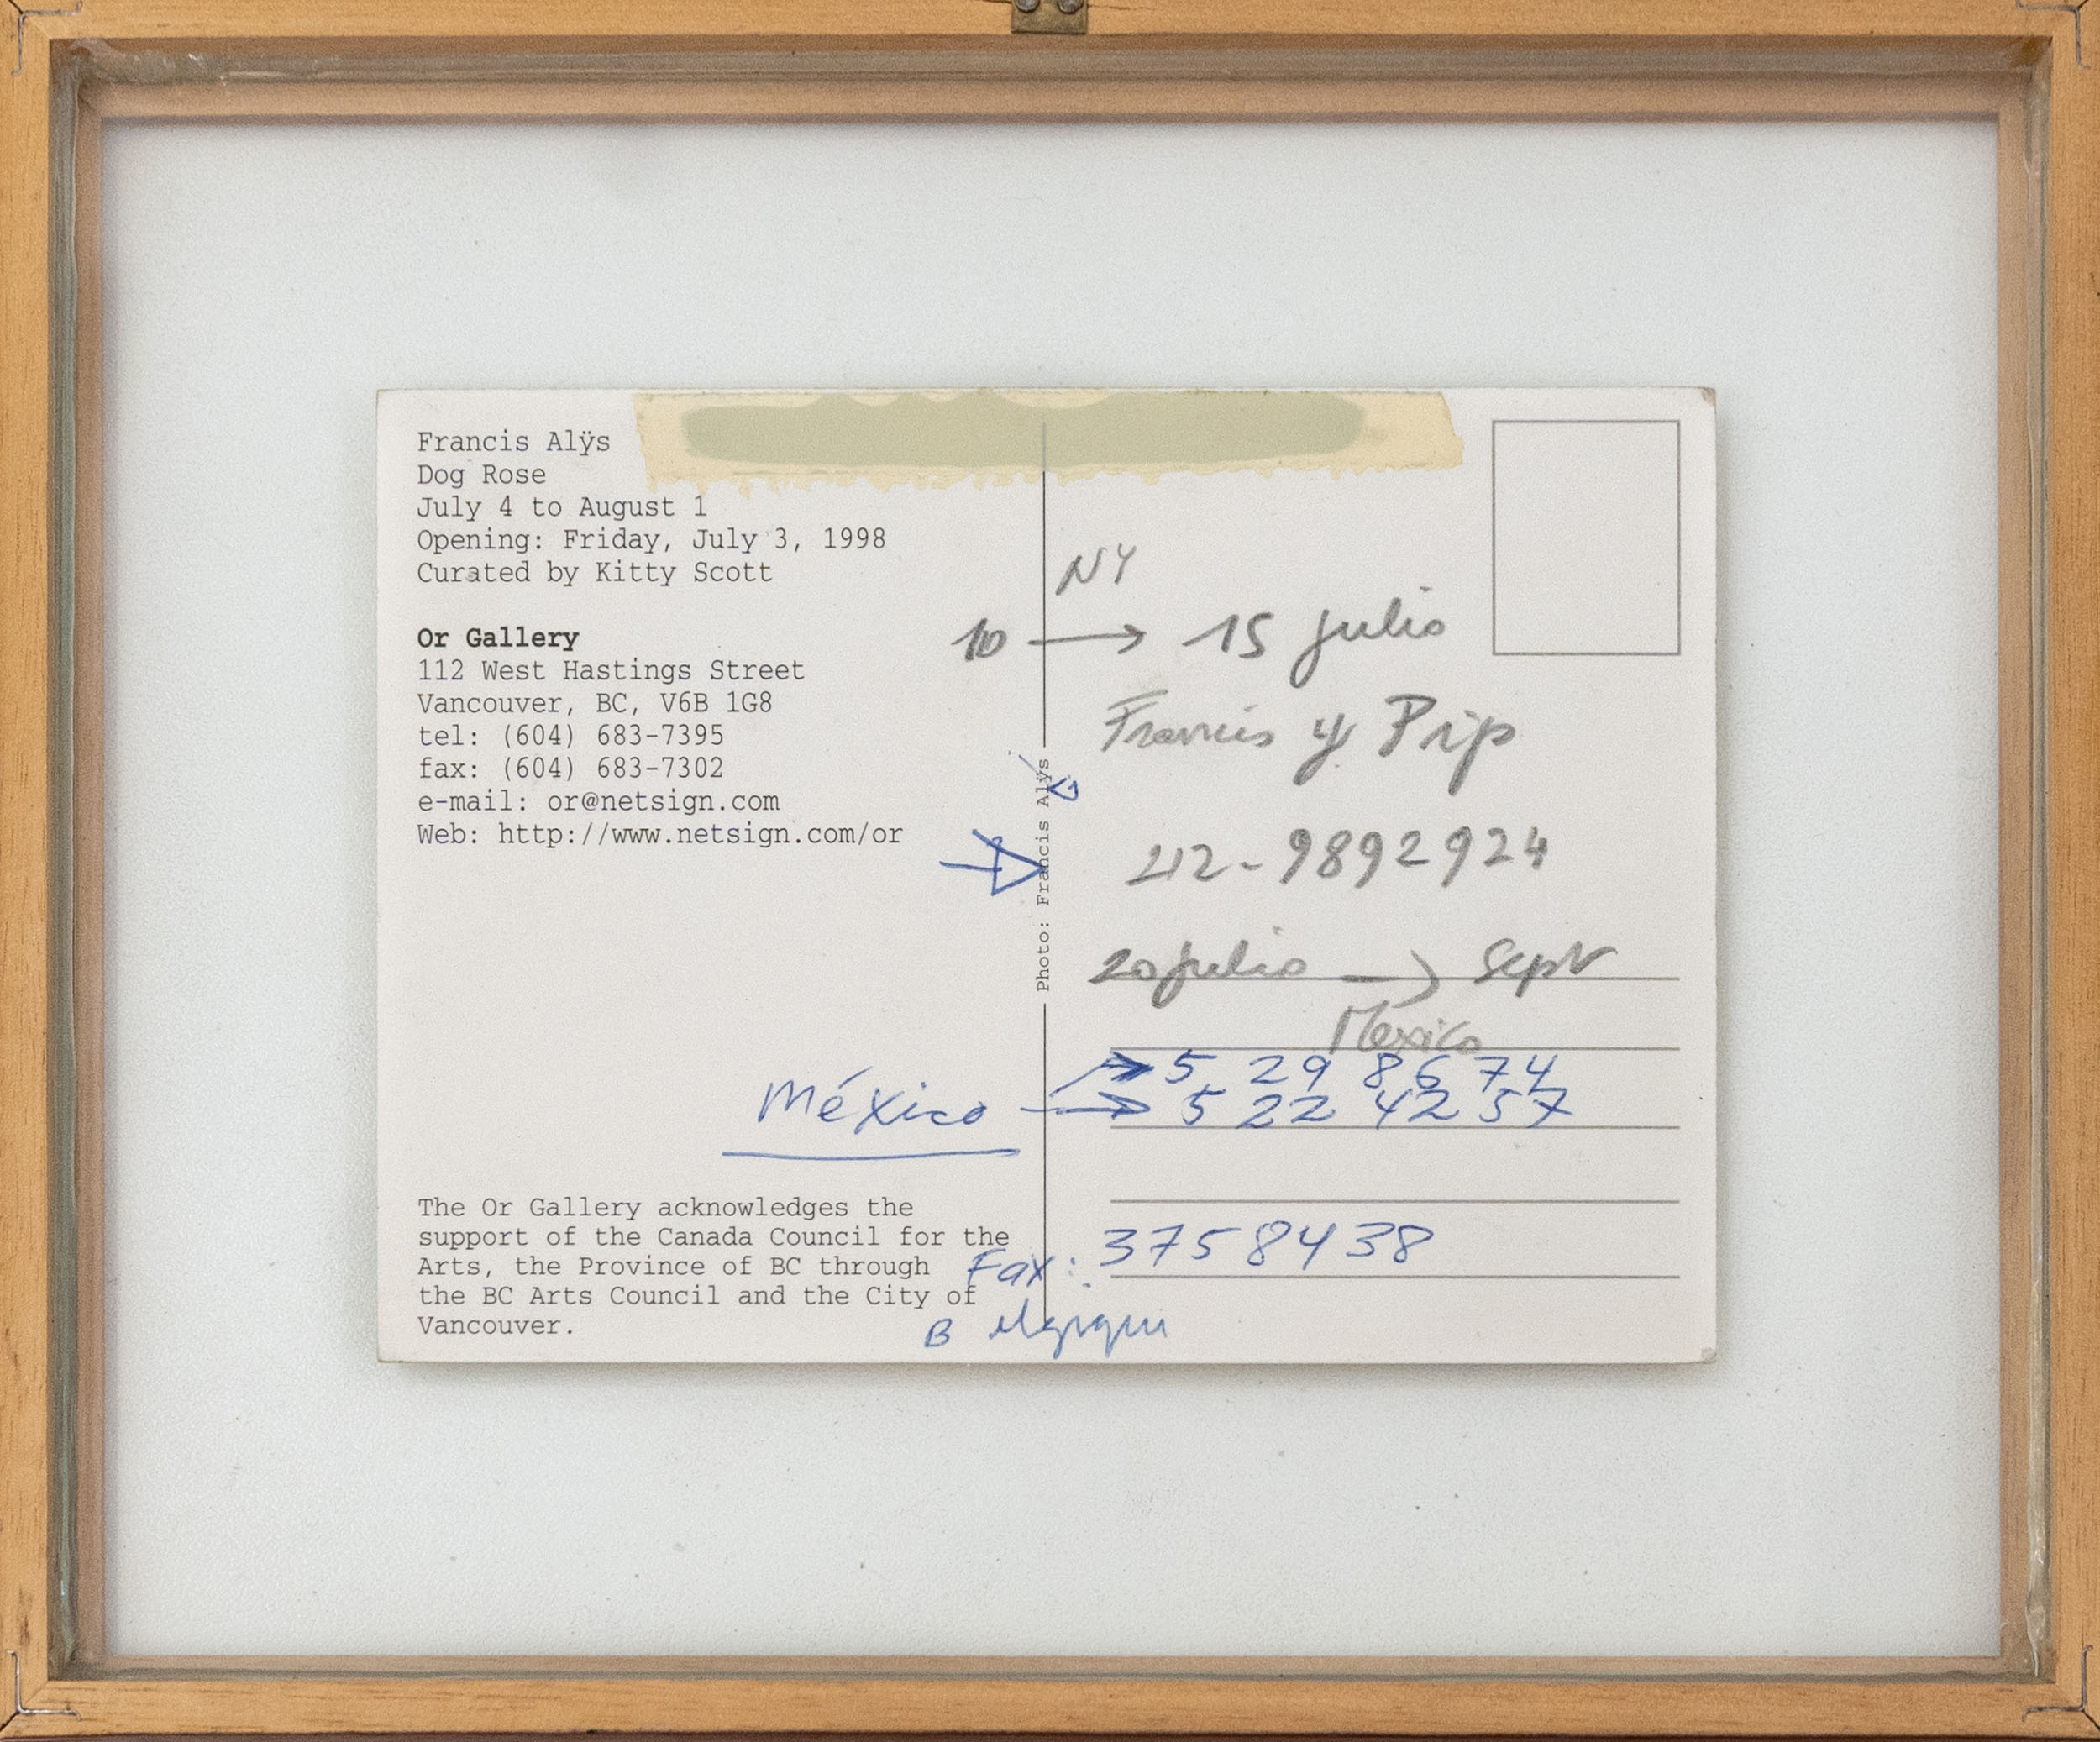 Francis Alÿs
Dog Rose
July 4 to August 1
Opening: Friday, July 3, 1998
Curated by Kitty Scott
Or Gallery
112 West Hastings Street
Vancouver, BC, V6B 1G8
tel: (604) 683-7395
fax: (604) 683-7302
e-mail: or@netsign.com
Web: http://www.netsign.com/or
The Or Gallery acknowledges the
support of the Canada Council for the
Arts, the Province of BC through
the BC Arts Council and the City of
Vancouver.
Photo: Francis Alÿs
NY
10 → 15 julio
Francis y Pip
212-9892924
20 julio → Sept
Mexico
México → 5 29 86 74
→ 5 22 42 57
Fax: 3758438